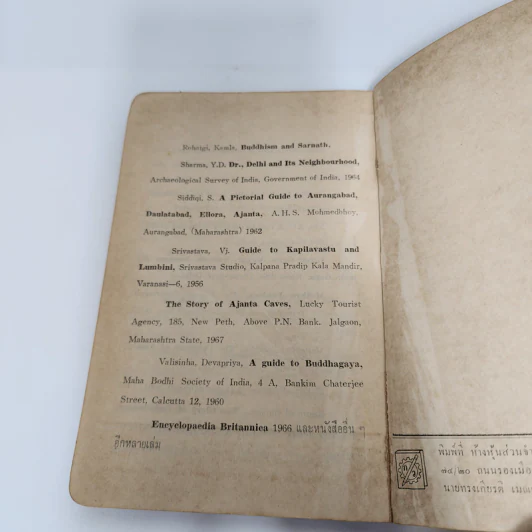 Rohatgi, Kamla, Buddhism and Sarnath,
Sharma, Y.D. Dr., Delhi and Its Neighbourhood,
Archaeological Survey of India, Government of India, 1964
Siddiqi, S. A Pictorial Guide to Aurangabad,
Daulatabad, Ellora, Ajanta, A.H.S. Mohmedbhoy,
Aurangabad, (Maharashtra) 1962
Srivastava, Vj. Guide to Kapilavastu and
Lumbini, Srivastava Studio, Kalpana Pradip Kala Mandir,
Varanasi—6, 1956
The Story of Ajanta Caves, Lucky Tourist
Agency, 185, New Peth, Above P.N. Bank. Jalgaon,
Maharashtra State, 1967
Valisinha, Devapriya, A guide to Buddhagaya,
Maha Bodhi Society of India, 4 A, Bankim Chaterjee
Street, Calcutta 12, 1960
Encyclopaedia Britannica 1966 และหนังสืออื่น ๆ
อีกหลายเล่ม
พิมพ์ที่ ห้างหุ้นส่วนจำ
๗๔/๒๐ ถนนรองเมือ
นายทรงเกียรติ